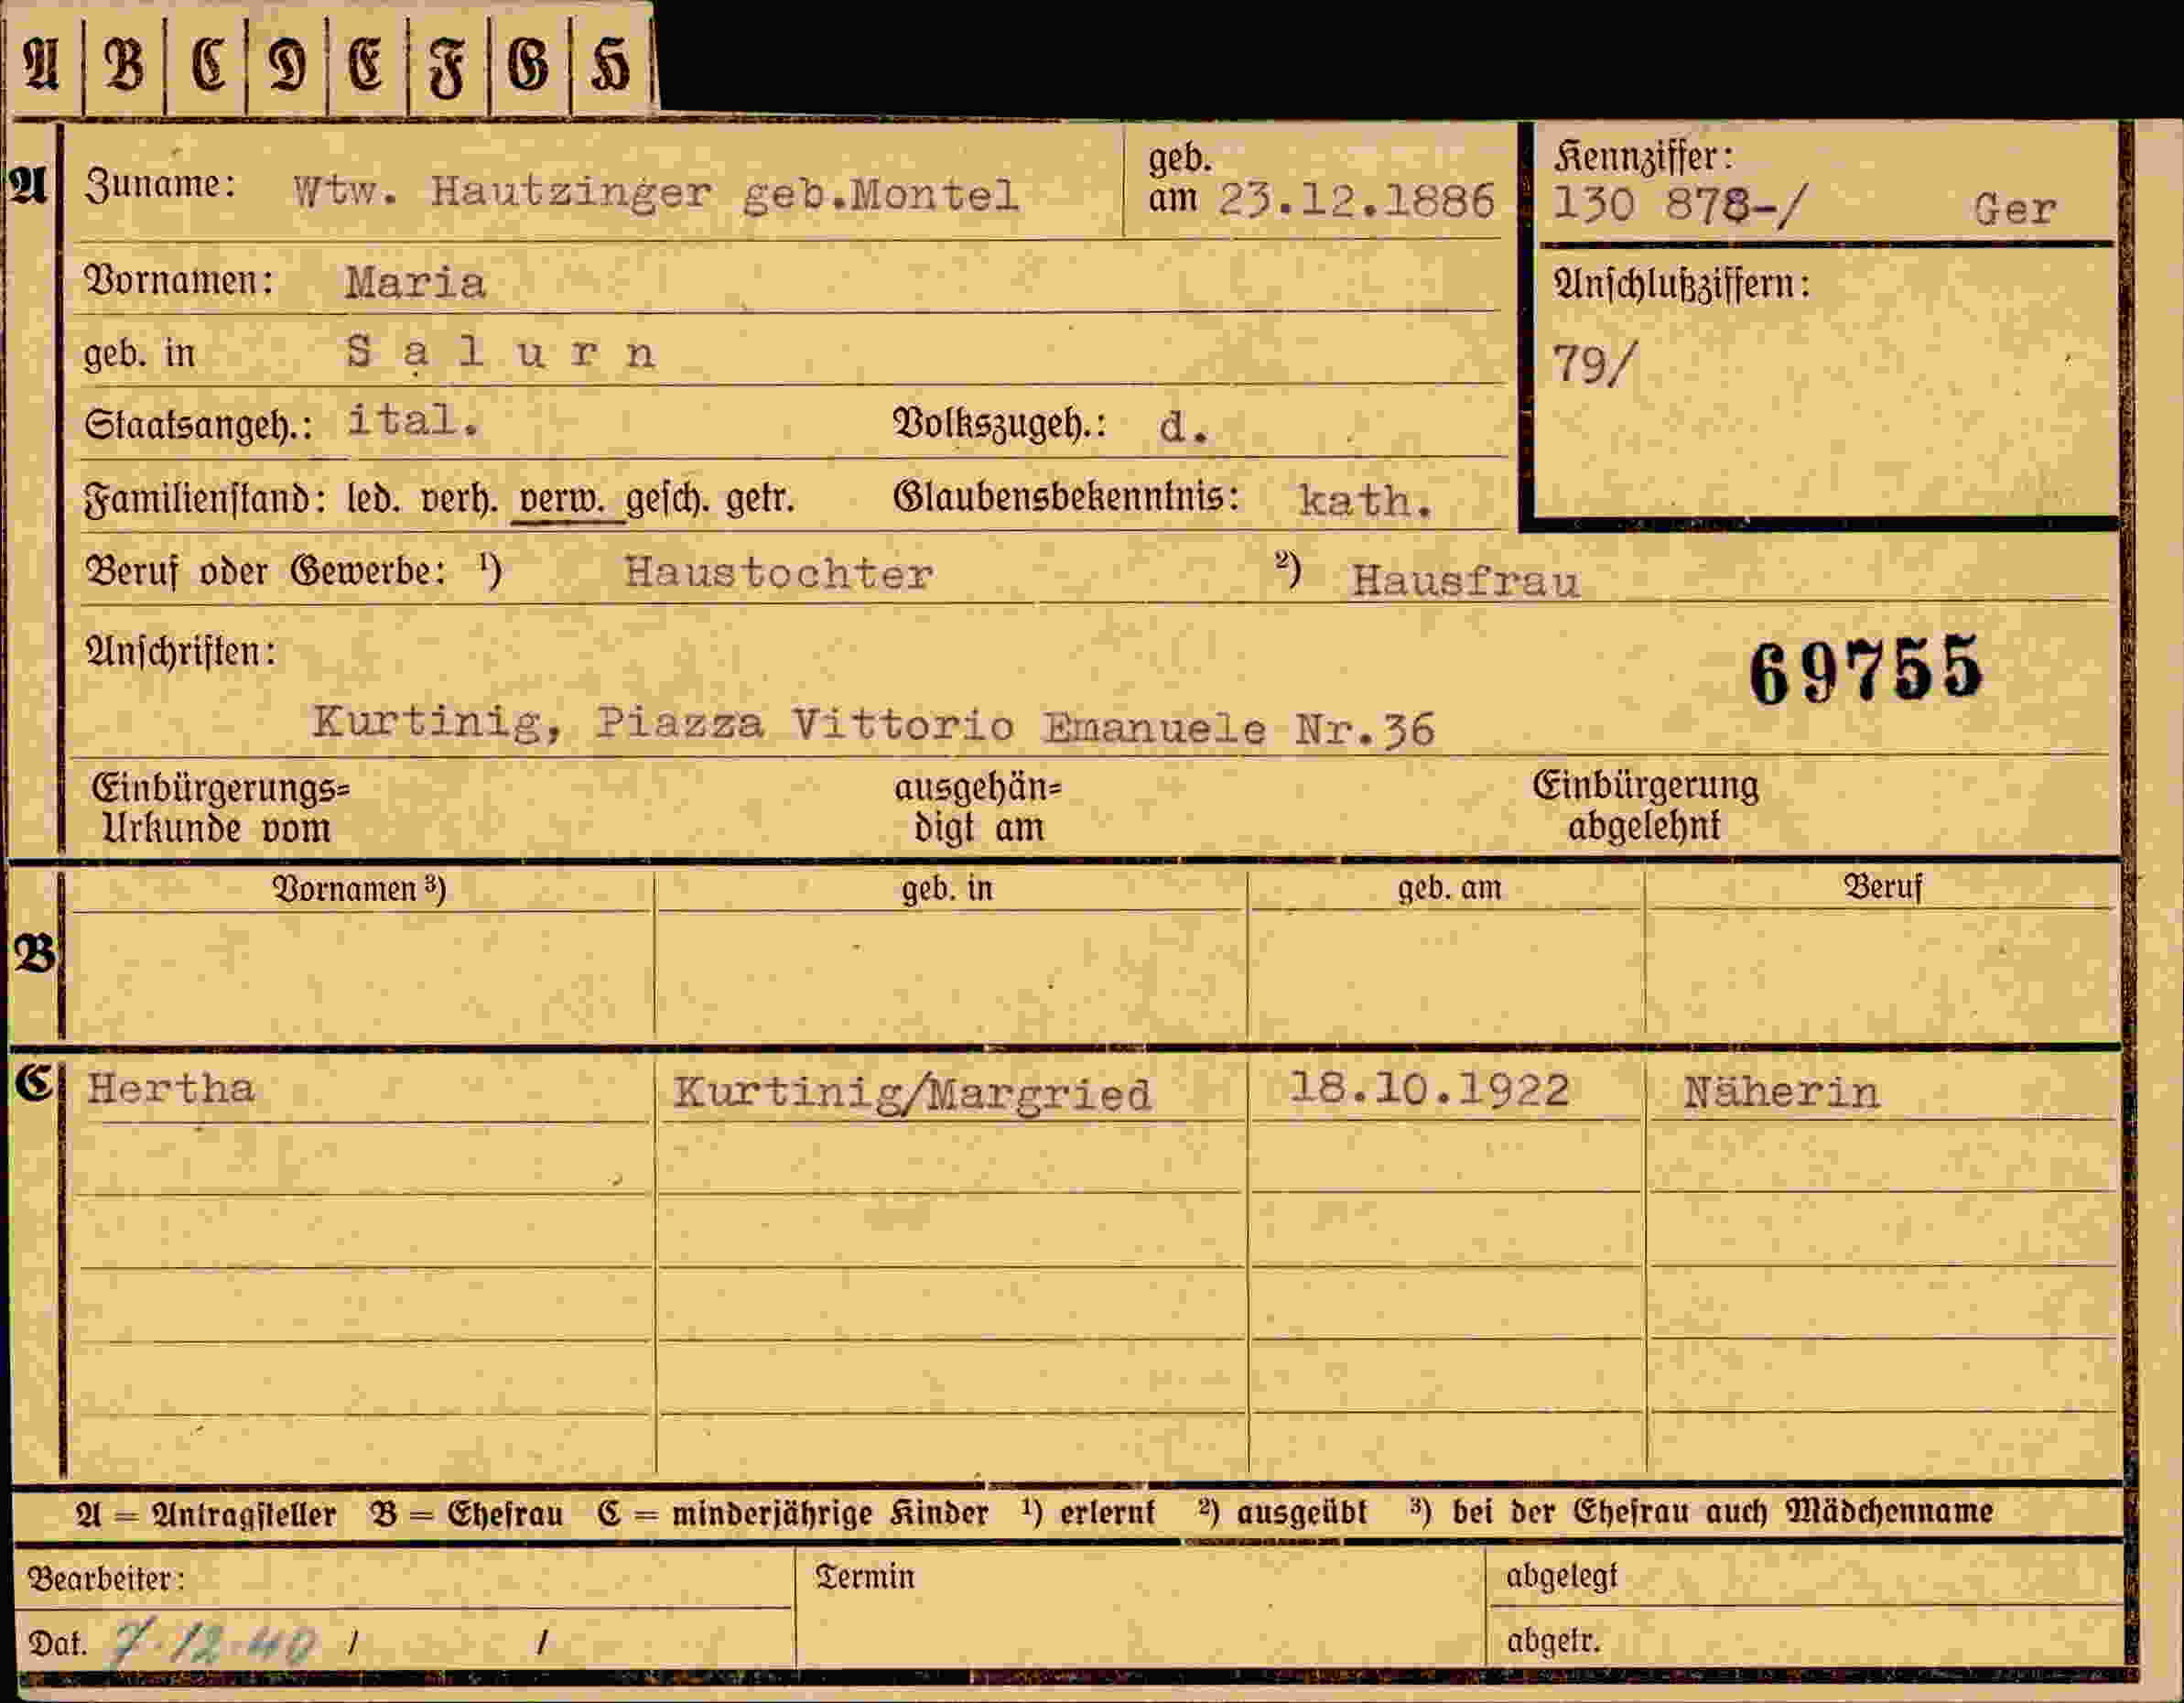 A B C D E F G H
A Zuname: Wtw. Hautzinger geb.Montel geb. am 23.12.1886
Kennziffer:
130 878-/ Ger
Vornamen: Maria
Anschlußziffern:
79/
geb. in Salurn
Staatsangeh.: ital. Volkszugeh.: d.
Familienstand: led. verh. verw. gesch. getr. Glaubensbekenntnis: kath.
Beruf oder Gewerbe: ¹) Haustochter ²) Hausfrau
Anschriften:
69755
Kurtinig, Piazza Vittorio Emanuele Nr.36
Einbürgerungs= ausgehän= Einbürgerung
Urkunde vom digt am abgelehnt
Vornamen ³) geb. in geb. am Beruf
B
C Hertha Kurtinig/Margried 18.10.1922 Näherin
A = Antragsteller B = Ehefrau C = minderjährige Kinder ¹) erlernt ²) ausgeübt ³) bei der Ehefrau auch Mädchenname
Bearbeiter: Termin abgelegt
Dat. 7.12.40 / / abgetr.